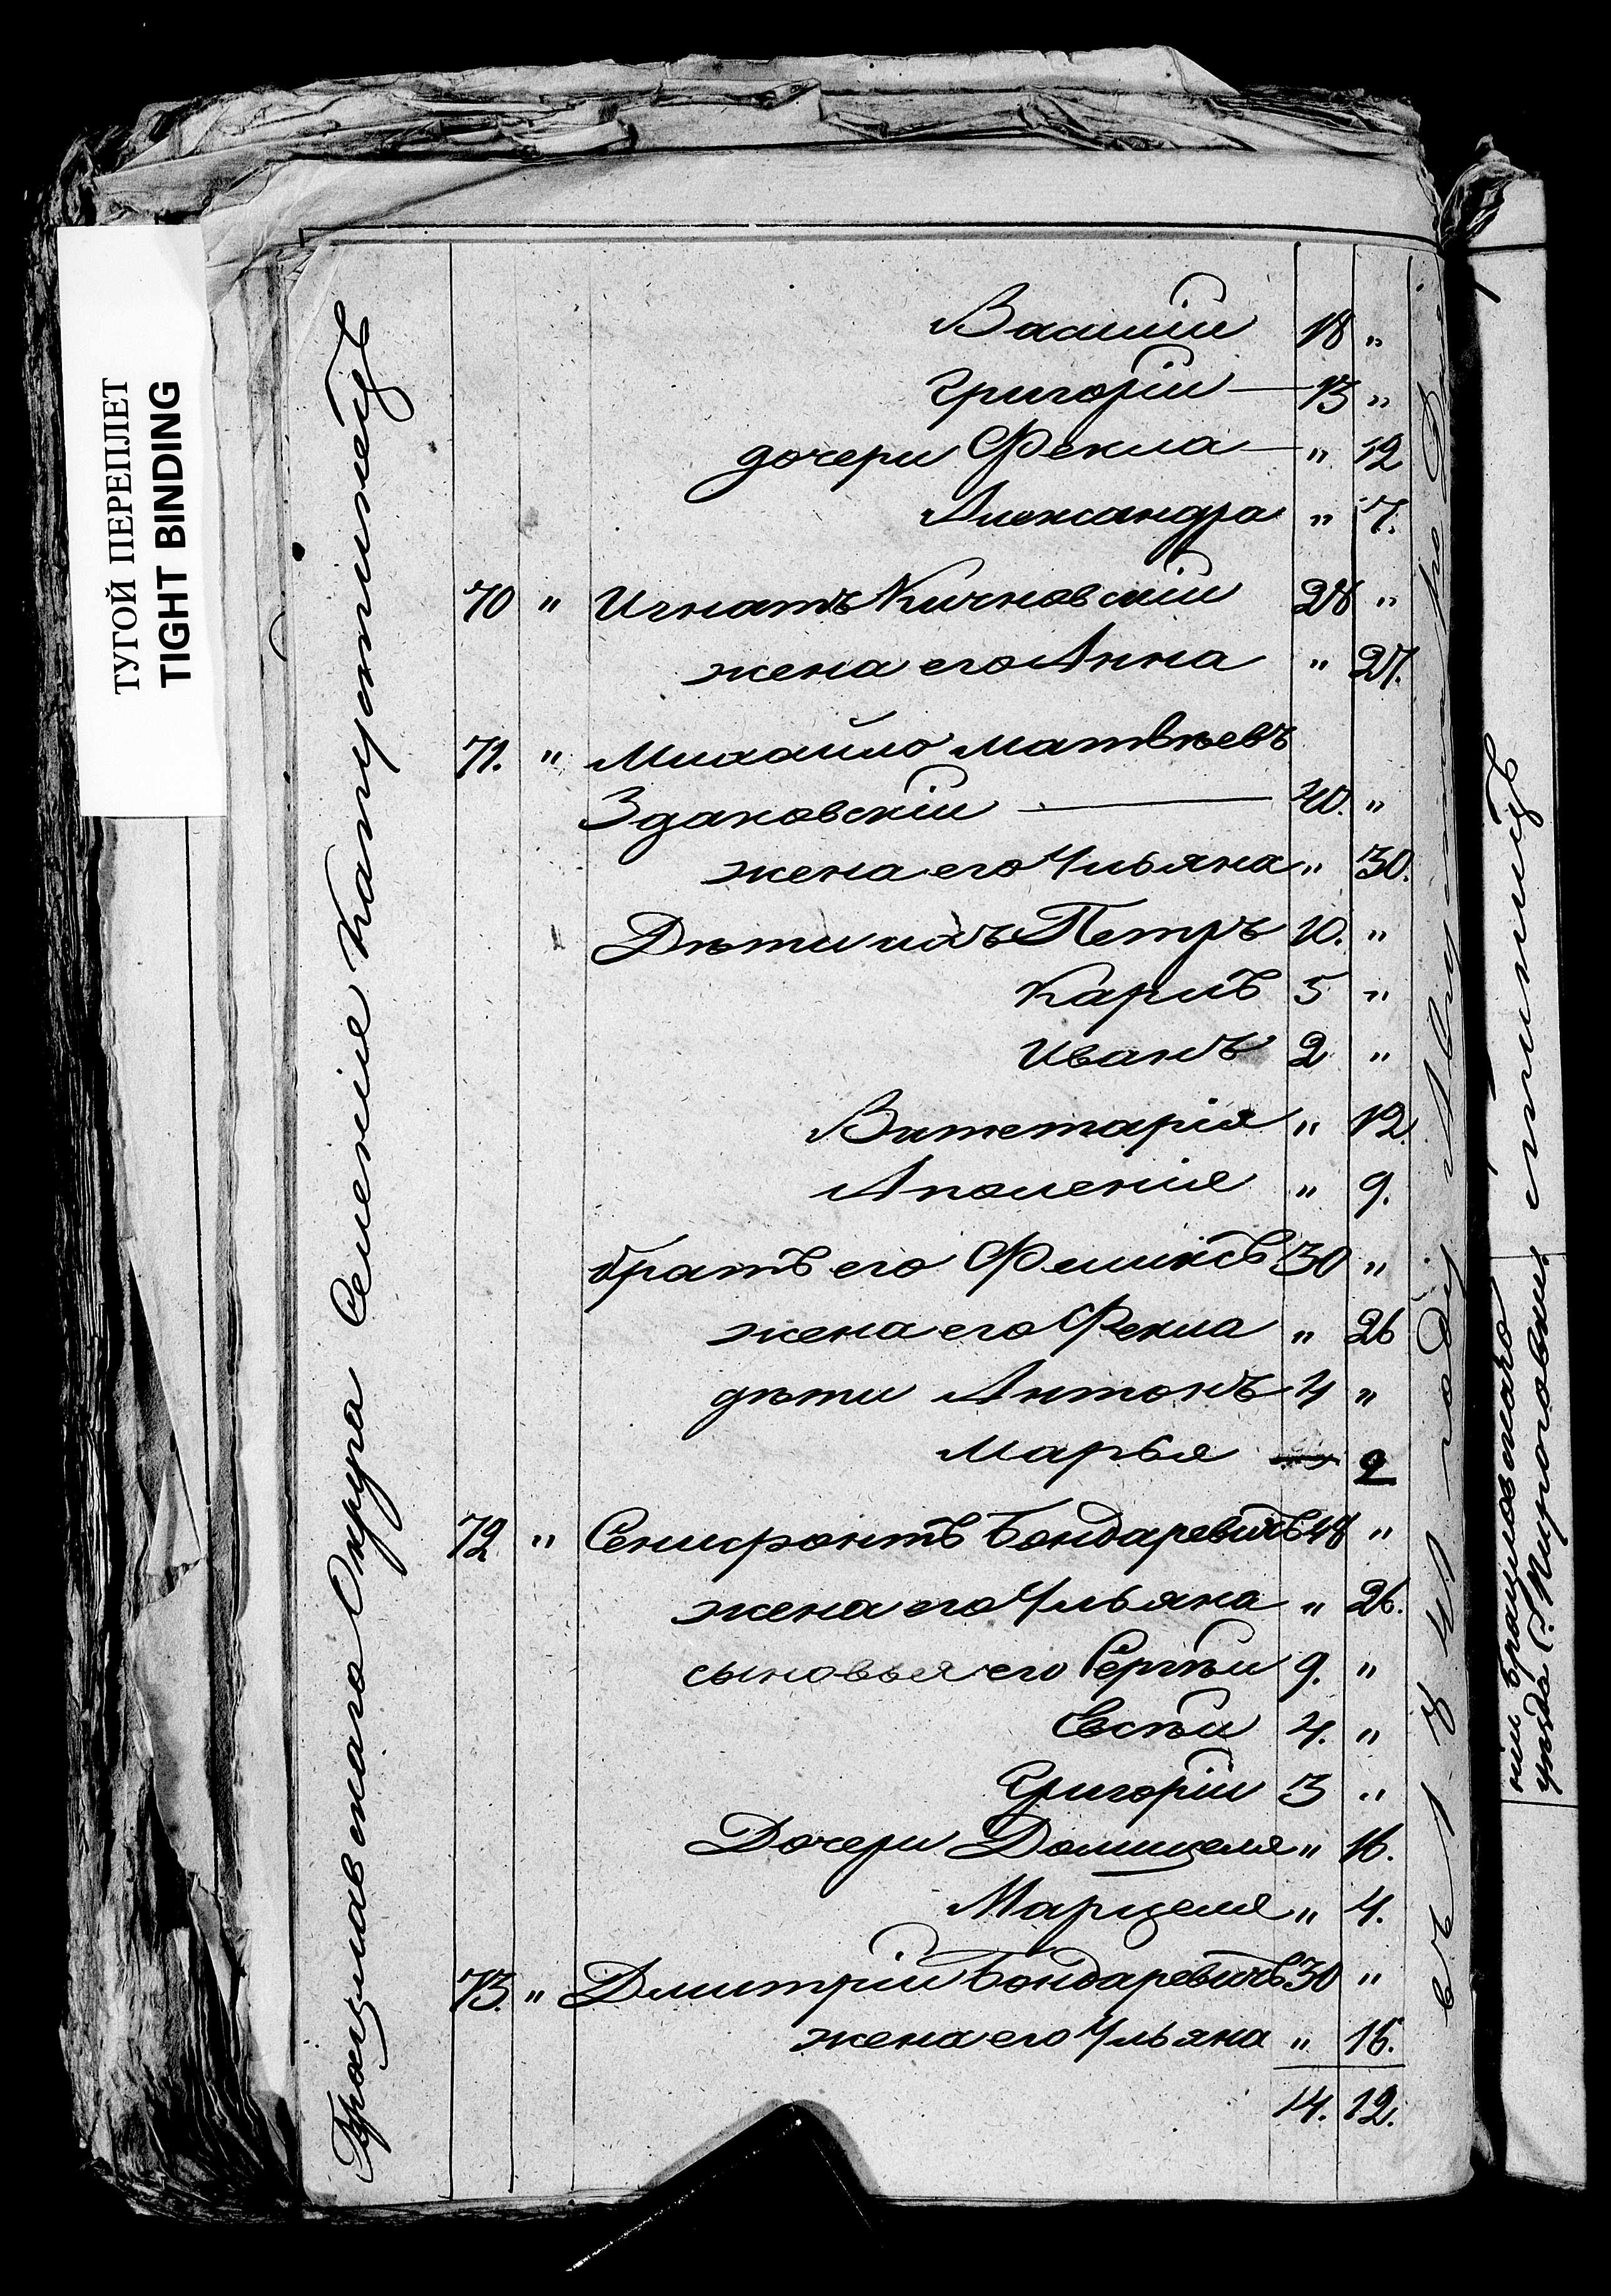 ТУГОЙ ПЕРЕПЛЕТ
TIGHT BINDING
Брацлавскаго Округа Селеніе
Василій 18 "
Григорій — 13 "
дочери Фекла — " 12
Александра " 7.
70 " Игнатъ Кичковскій 28 "
жена его Анна " 27.
71. " Михайло Матвѣевъ
Здановскій — 40. "
жена его Ульяна " 30.
Дѣти ихъ Петръ 10. "
Карпъ 5 "
Иванъ 2 "
" 12
Аполенія " 9.
братъ его Феликсъ 30 "
жена его Фекла " 26
дѣти Антонъ 4 "
Марья 2
72 " Бондаревичъ 48 "
жена его Ульяна " 26.
сыновья его Сергѣй 9. "
Евсѣй 4. "
Григорій 3 "
Дочери Домицеля " 16.
Марцеля " 4.
73. " Дмитрій Бондаревичъ 30 "
жена его Ульяна " 16.
14. 12.